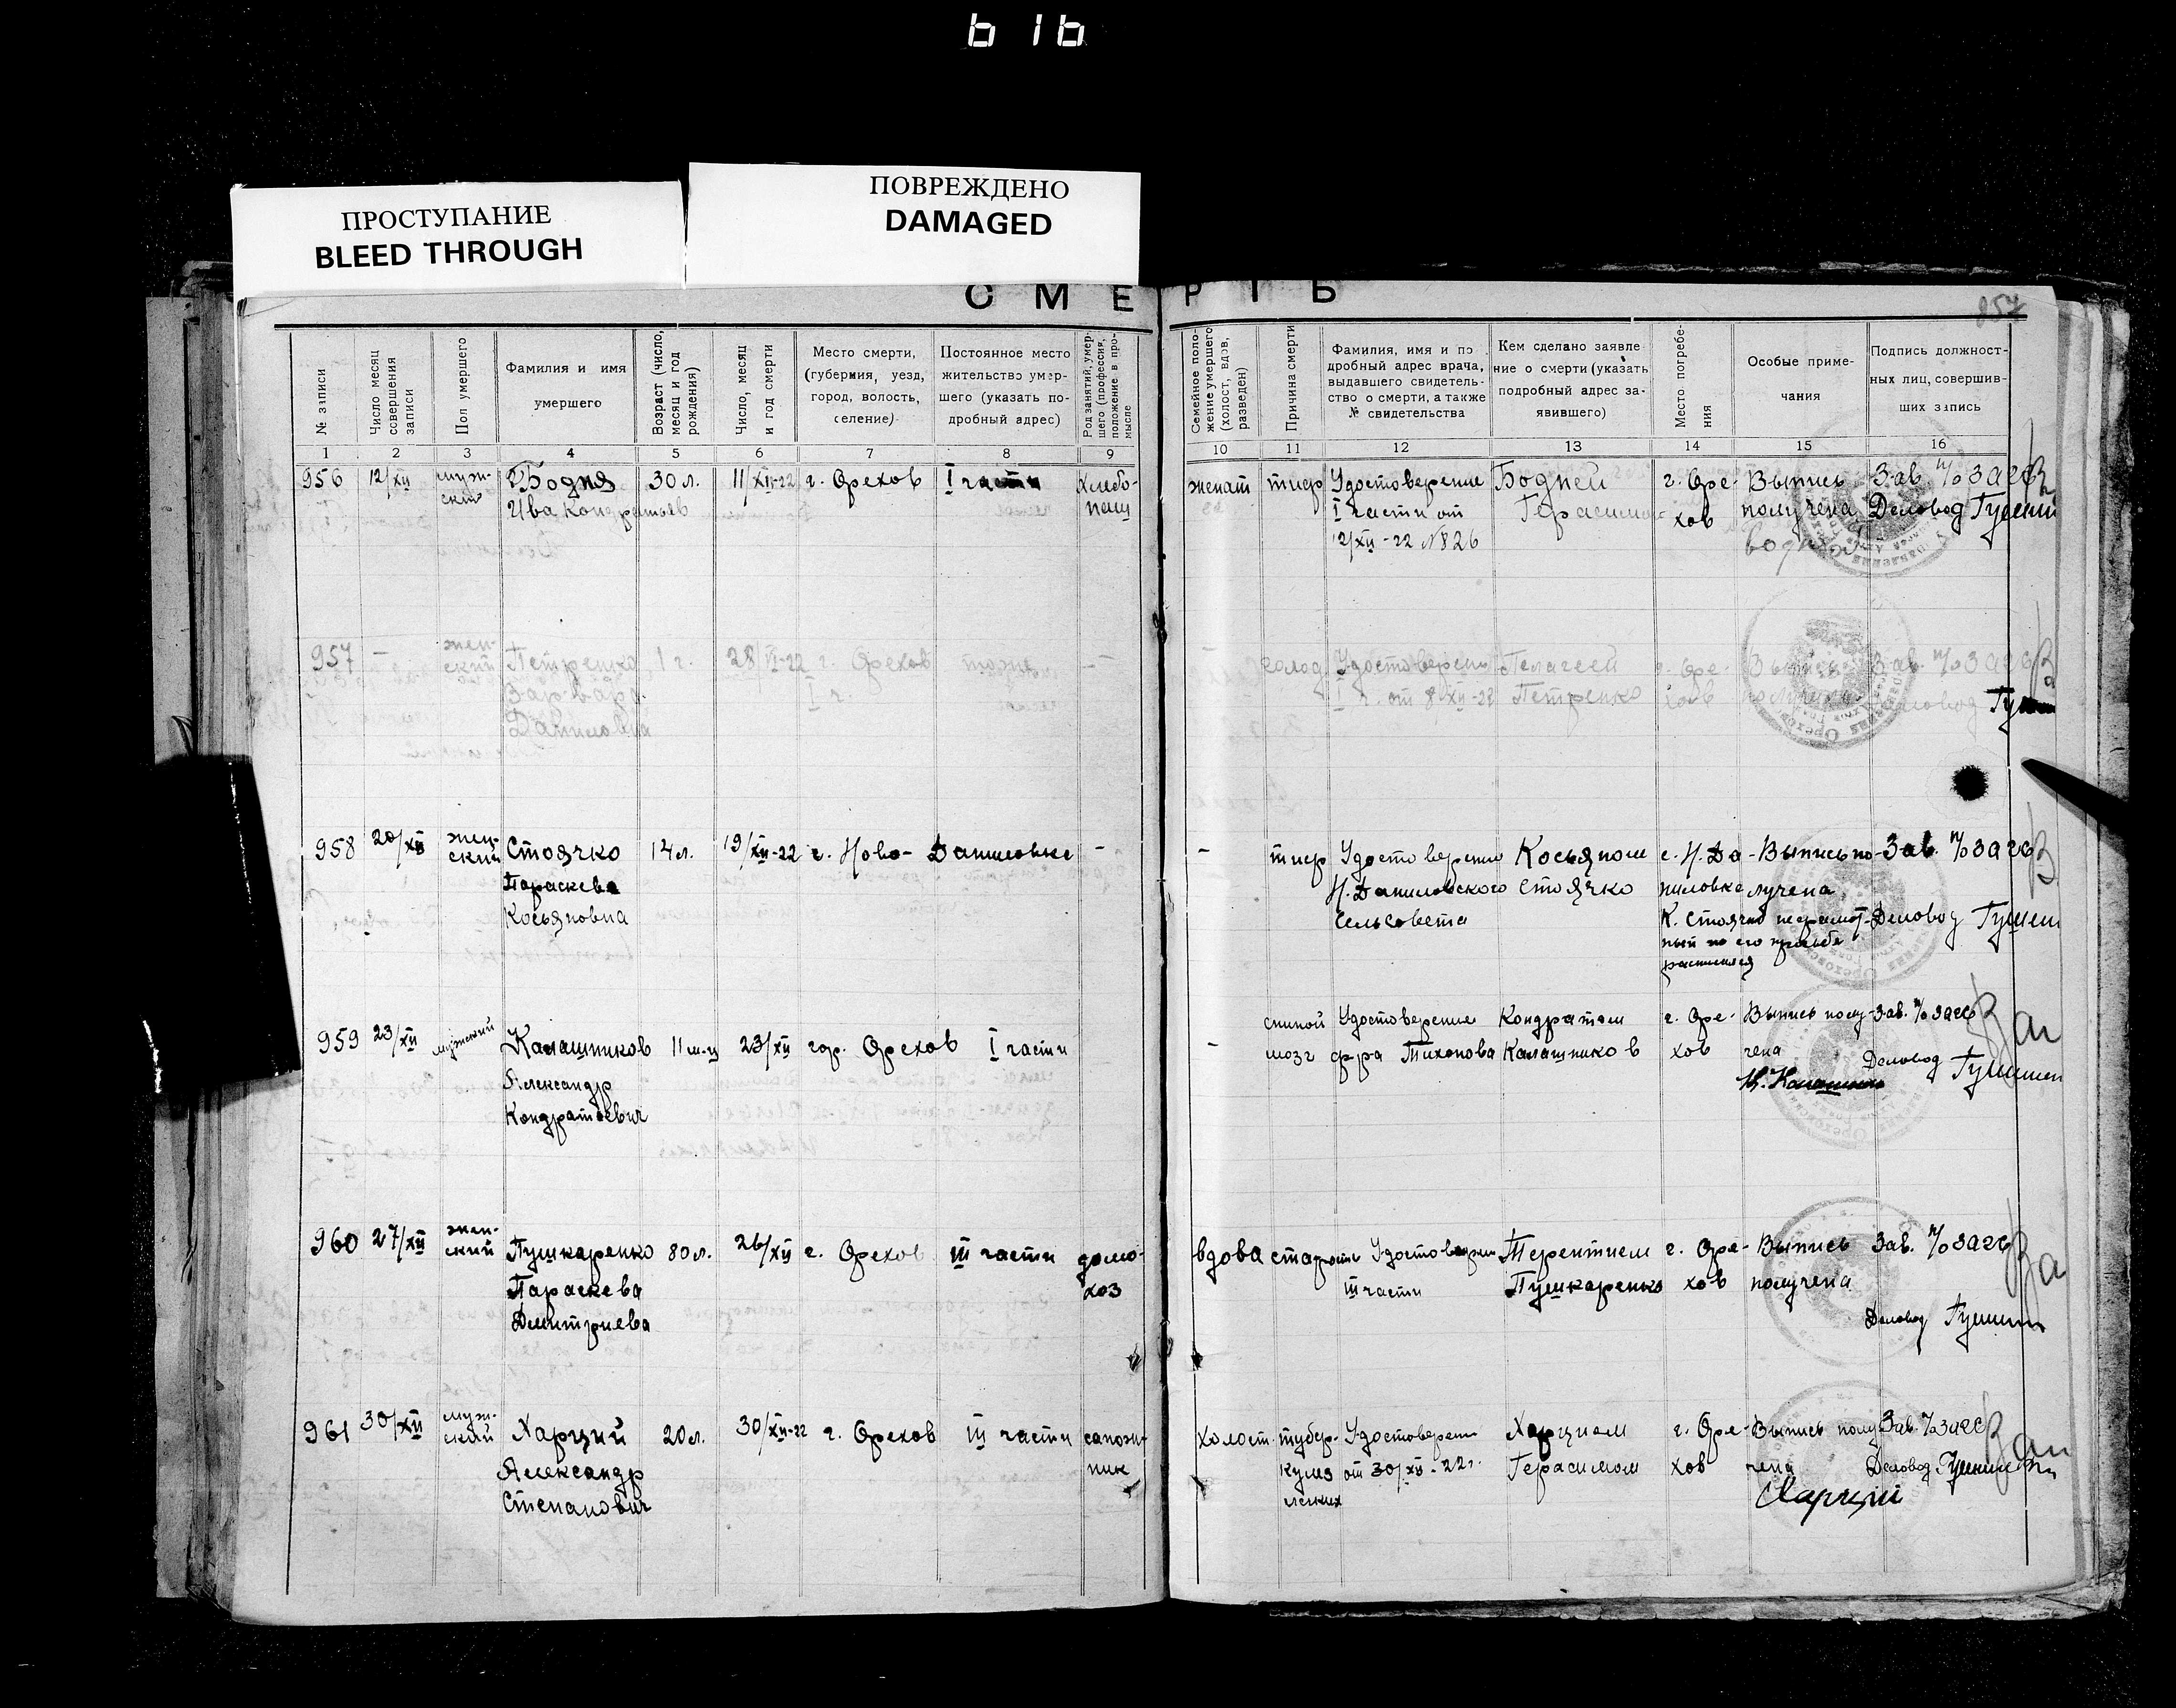 616
ПРОСТУПАНИЕ
BLEED THROUGH
ПОВРЕЖДЕНО
DAMAGED
СМЕРТЬ
857
№ записи
Число месяц совершения записи
Пол умершего
Фамилия и имя умершего
Возраст (число, месяц и год рождения)
Число, месяц и год смерти
Место смерти, (губерния, уезд, город, волость, селение)
Постоянное место жительство умершего (указать подробный адрес)
Род занятий, умершего (профессия, положение в промысле
Семейное положение умершего (холост, вдов, разведен)
Причина смерти
Фамилия, имя и подробный адрес врача, выдавшего свидетельство о смерти, а также № свидетельства
Кем сделано заявление о смерти (указать подробный адрес заявившего)
Место погребения
Особые примечания
Подпись должностных лиц, совершивших запись
1 2 3 4 5 6 7 8 9 10 11 12 13 14 15 16
956 12/XII муж- Бодня 30 л. 11/XII-22 г. Орехов I части хлебо- женат тиф Удостоверение Бодней г. Оре- Выпись Зав. п/о загс
ский Ива Кондратьев паш I части от Герасимо- хов получена Деловод
12/XII-22 №826
957 — жен- Петренко 1 г. 28/VI-22 г. Орехов — голод Удостоверени Пелагеей г. Оре- Выпись Зав. п/о загс
ский Варвара I ч. I ч. от 8/XII-22 Петренко хов получена Деловод
Даниловна
958 20/XII жен- Стоячко 14 л. 19/XII-22 с. Ново-Даниловке — - тиф Удостоверение Косьяном с. Н. Да- Выпись по- Зав. п/о загс
ский Параскева Н. Даниловского Стоячко ниловке лучена
Косьяновна Сельсовета К. Стоячко неграмот- Деловод
ный по его просьбе
расписался
959 23/XII мужский Калашников 11 м-ц 23/XII гор. Орехов I части - спиной Удостоверение Кондратом г. Оре- Выпись полу- Зав. п/о загс
Александр мозг ф-ра Тихонова Калашников хов чена Деловод
Кондратьевич
960 27/XII жен- Пушкаренко 80 л. 26/XII г. Орехов III части домо- вдова старость Удостоверени Терентием г. Оре- Выпись Зав. п/о загс
ский Параскева хоз III части Пушкаренко хов получена
Дмитриева Деловод
961 30/XII муж- Харций 20 л. 30/XII-22 г. Орехов III части сапож- холост тубер- Удостоверени Харцием г. Оре- Выпись полу Зав. п/о загс
ский Александр ник кулез от 30/XII-22 г. Герасимом хов чена Деловод
Степанович легких Харций